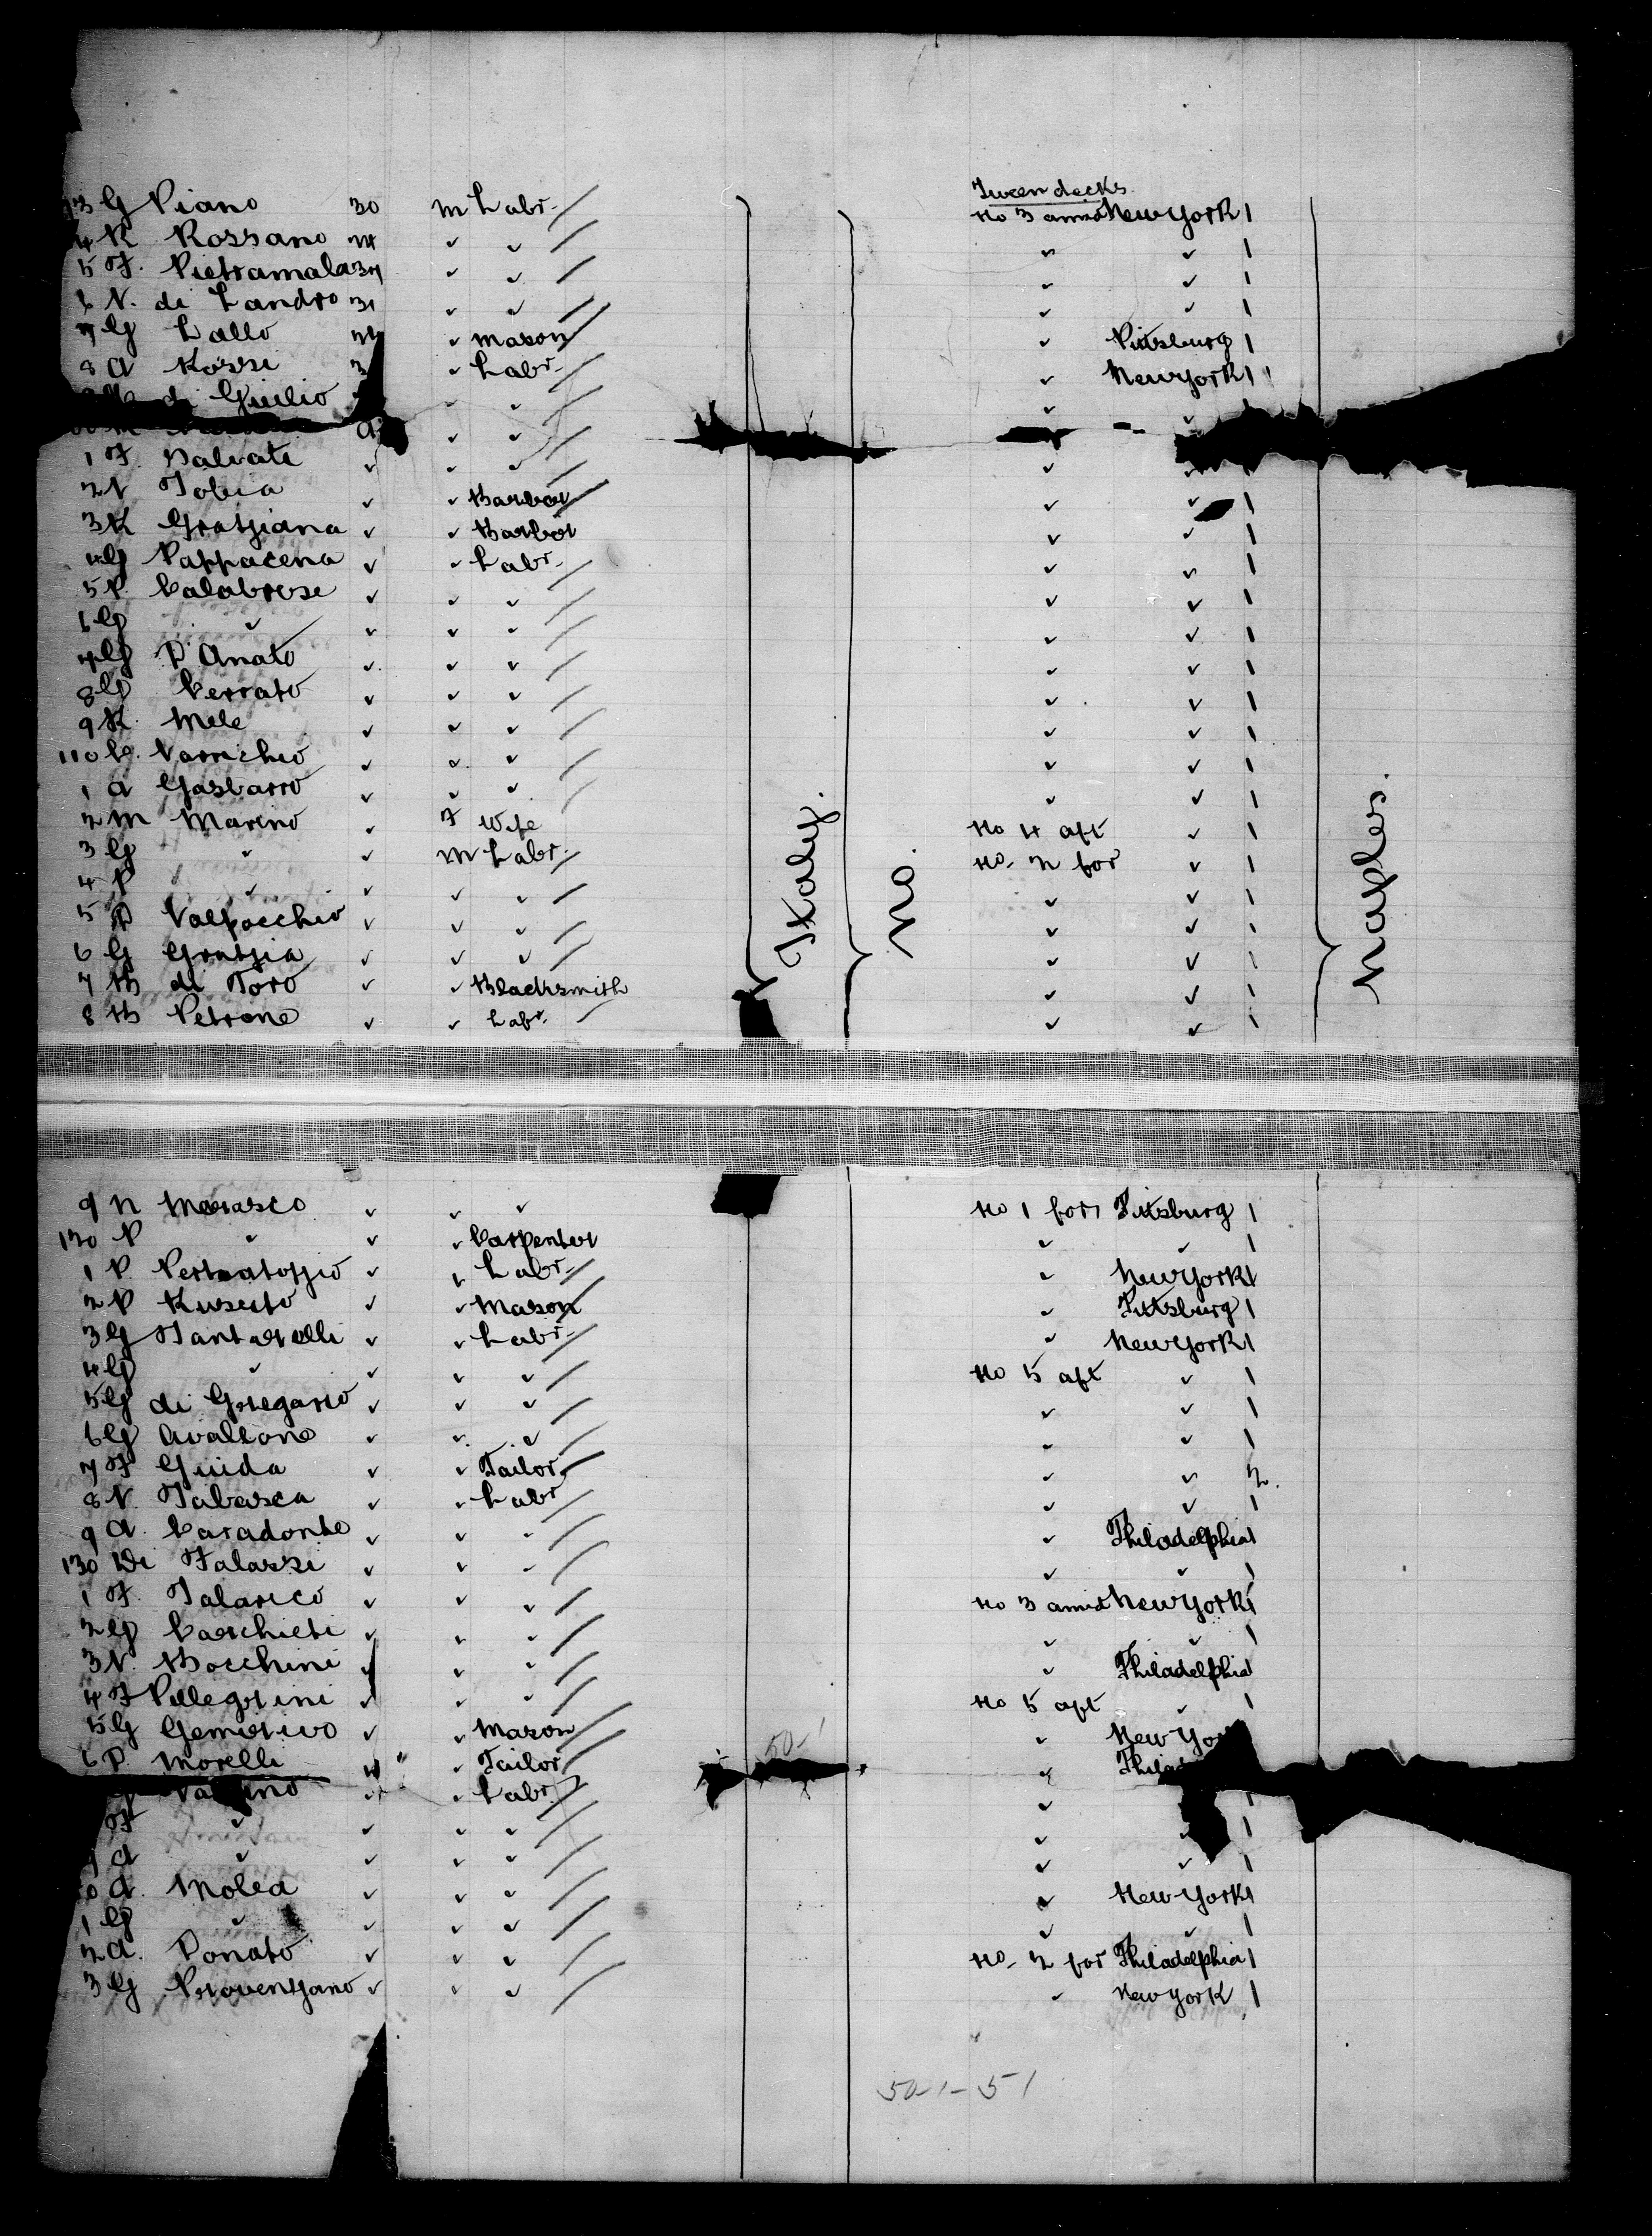 Tween decks
3 G Piano 30 m Labr. / No 3 amid New York 1
4 R Rossano / 1
5 F. Pietramala 34 ✓ ✓ / ✓ ✓ 1
6 N. di Landro 31 ✓ ✓ / ✓ ✓ 1
7 G Lallo ✓ mason / ✓ Pittsburg 1
8 A Rossi 3 ✓ Labr. / ✓ New York 1
di Giulio ✓ ✓ / ✓ ✓
✓ ✓ / ✓
1 F. Salvati ✓ ✓ ✓ / ✓ ✓ 1
2 V Tobia ✓ ✓ Barber / ✓ ✓ 1
3 R Gratziana ✓ ✓ Barber ✓ ✓ 1
4 G Pappacena ✓ ✓ Labr. / ✓ ✓ 1
5 P. Calabrese ✓ ✓ ✓ / ✓ ✓ 1
6 G ✓ ✓ ✓ ✓ / ✓ ✓ 1
7 G D'Anato ✓ ✓ ✓ / ✓ ✓ 1
8 G Cerrato ✓ ✓ ✓ / ✓ ✓ 1
9 R. Mele ✓ ✓ ✓ / ✓ ✓ 1
110 C. Varrichio ✓ ✓ ✓ / ✓ ✓ 1
1 A Gasbarro ✓ ✓ ✓ / ✓ ✓ 1
2 M Marino ✓ F Wife No 4 aft ✓ 1
3 G ✓ ✓ m Labr. / No. 2 for ✓ 1
4 P ✓ ✓ ✓ ✓ / ✓ ✓ 1
5 D Valpacchio ✓ ✓ ✓ / ✓ ✓ 1
6 G Gratzia ✓ ✓ ✓ / ✓ ✓ 1
7 B di Toro ✓ ✓ Blacksmith ✓ ✓ 1
8 B Petrone ✓ ✓ Labr. / ✓ ✓ 1
Italy.
No.
Naples.
9 N Marasco ✓ ✓ ✓ No 1 for Pittsburg 1
120 P ✓ ✓ ✓ Carpenter ✓ ✓ 1
1 P. ✓ ✓ Labr. / ✓ New York 1
2 P ✓ ✓ Mason / ✓ Pittsburg 1
3 G Tantarelli ✓ ✓ Labr. / ✓ New York 1
4 G ✓ ✓ ✓ ✓ / No 5 aft ✓ 1
5 G di Gregario ✓ ✓ ✓ / ✓ ✓ 1
6 G Avallone ✓ ✓ ✓ / ✓ ✓ 1
7 F Guida ✓ ✓ Tailor / ✓ ✓ 2.
8 N. Tabasca ✓ ✓ Labr / ✓ ✓ 1
9 A. Caradonte ✓ ✓ ✓ / ✓ Philadelphia 1
130 Di Falassi ✓ ✓ ✓ / ✓ ✓ 1
1 F. Talarico ✓ ✓ ✓ / No 3 amid New York 1
2 G Carchieti ✓ ✓ ✓ / ✓ ✓ 1
3 N. Bocchini ✓ ✓ ✓ / ✓ Philadelphia 1
4 F Pellegrini ✓ ✓ ✓ / No 5 aft ✓ 1
5 G ✓ ✓ Mason / ✓ New Yor
6 P. Morelli " ✓ Tailor / ✓ Philad
50-1
✓ ✓ Labr. / ✓
F ✓ ✓ ✓ ✓ / ✓ ✓ 1
9 A ✓ ✓ ✓ ✓ / ✓ ✓ 1
0 A. Molea ✓ ✓ ✓ / ✓ New York 1
1 G ✓ ✓ ✓ ✓ / ✓ ✓ 1
2 A. Donato ✓ ✓ ✓ / No. 2 for Philadelphia 1
3 G Provenzano ✓ ✓ ✓ / ✓ New York 1
50-1-51